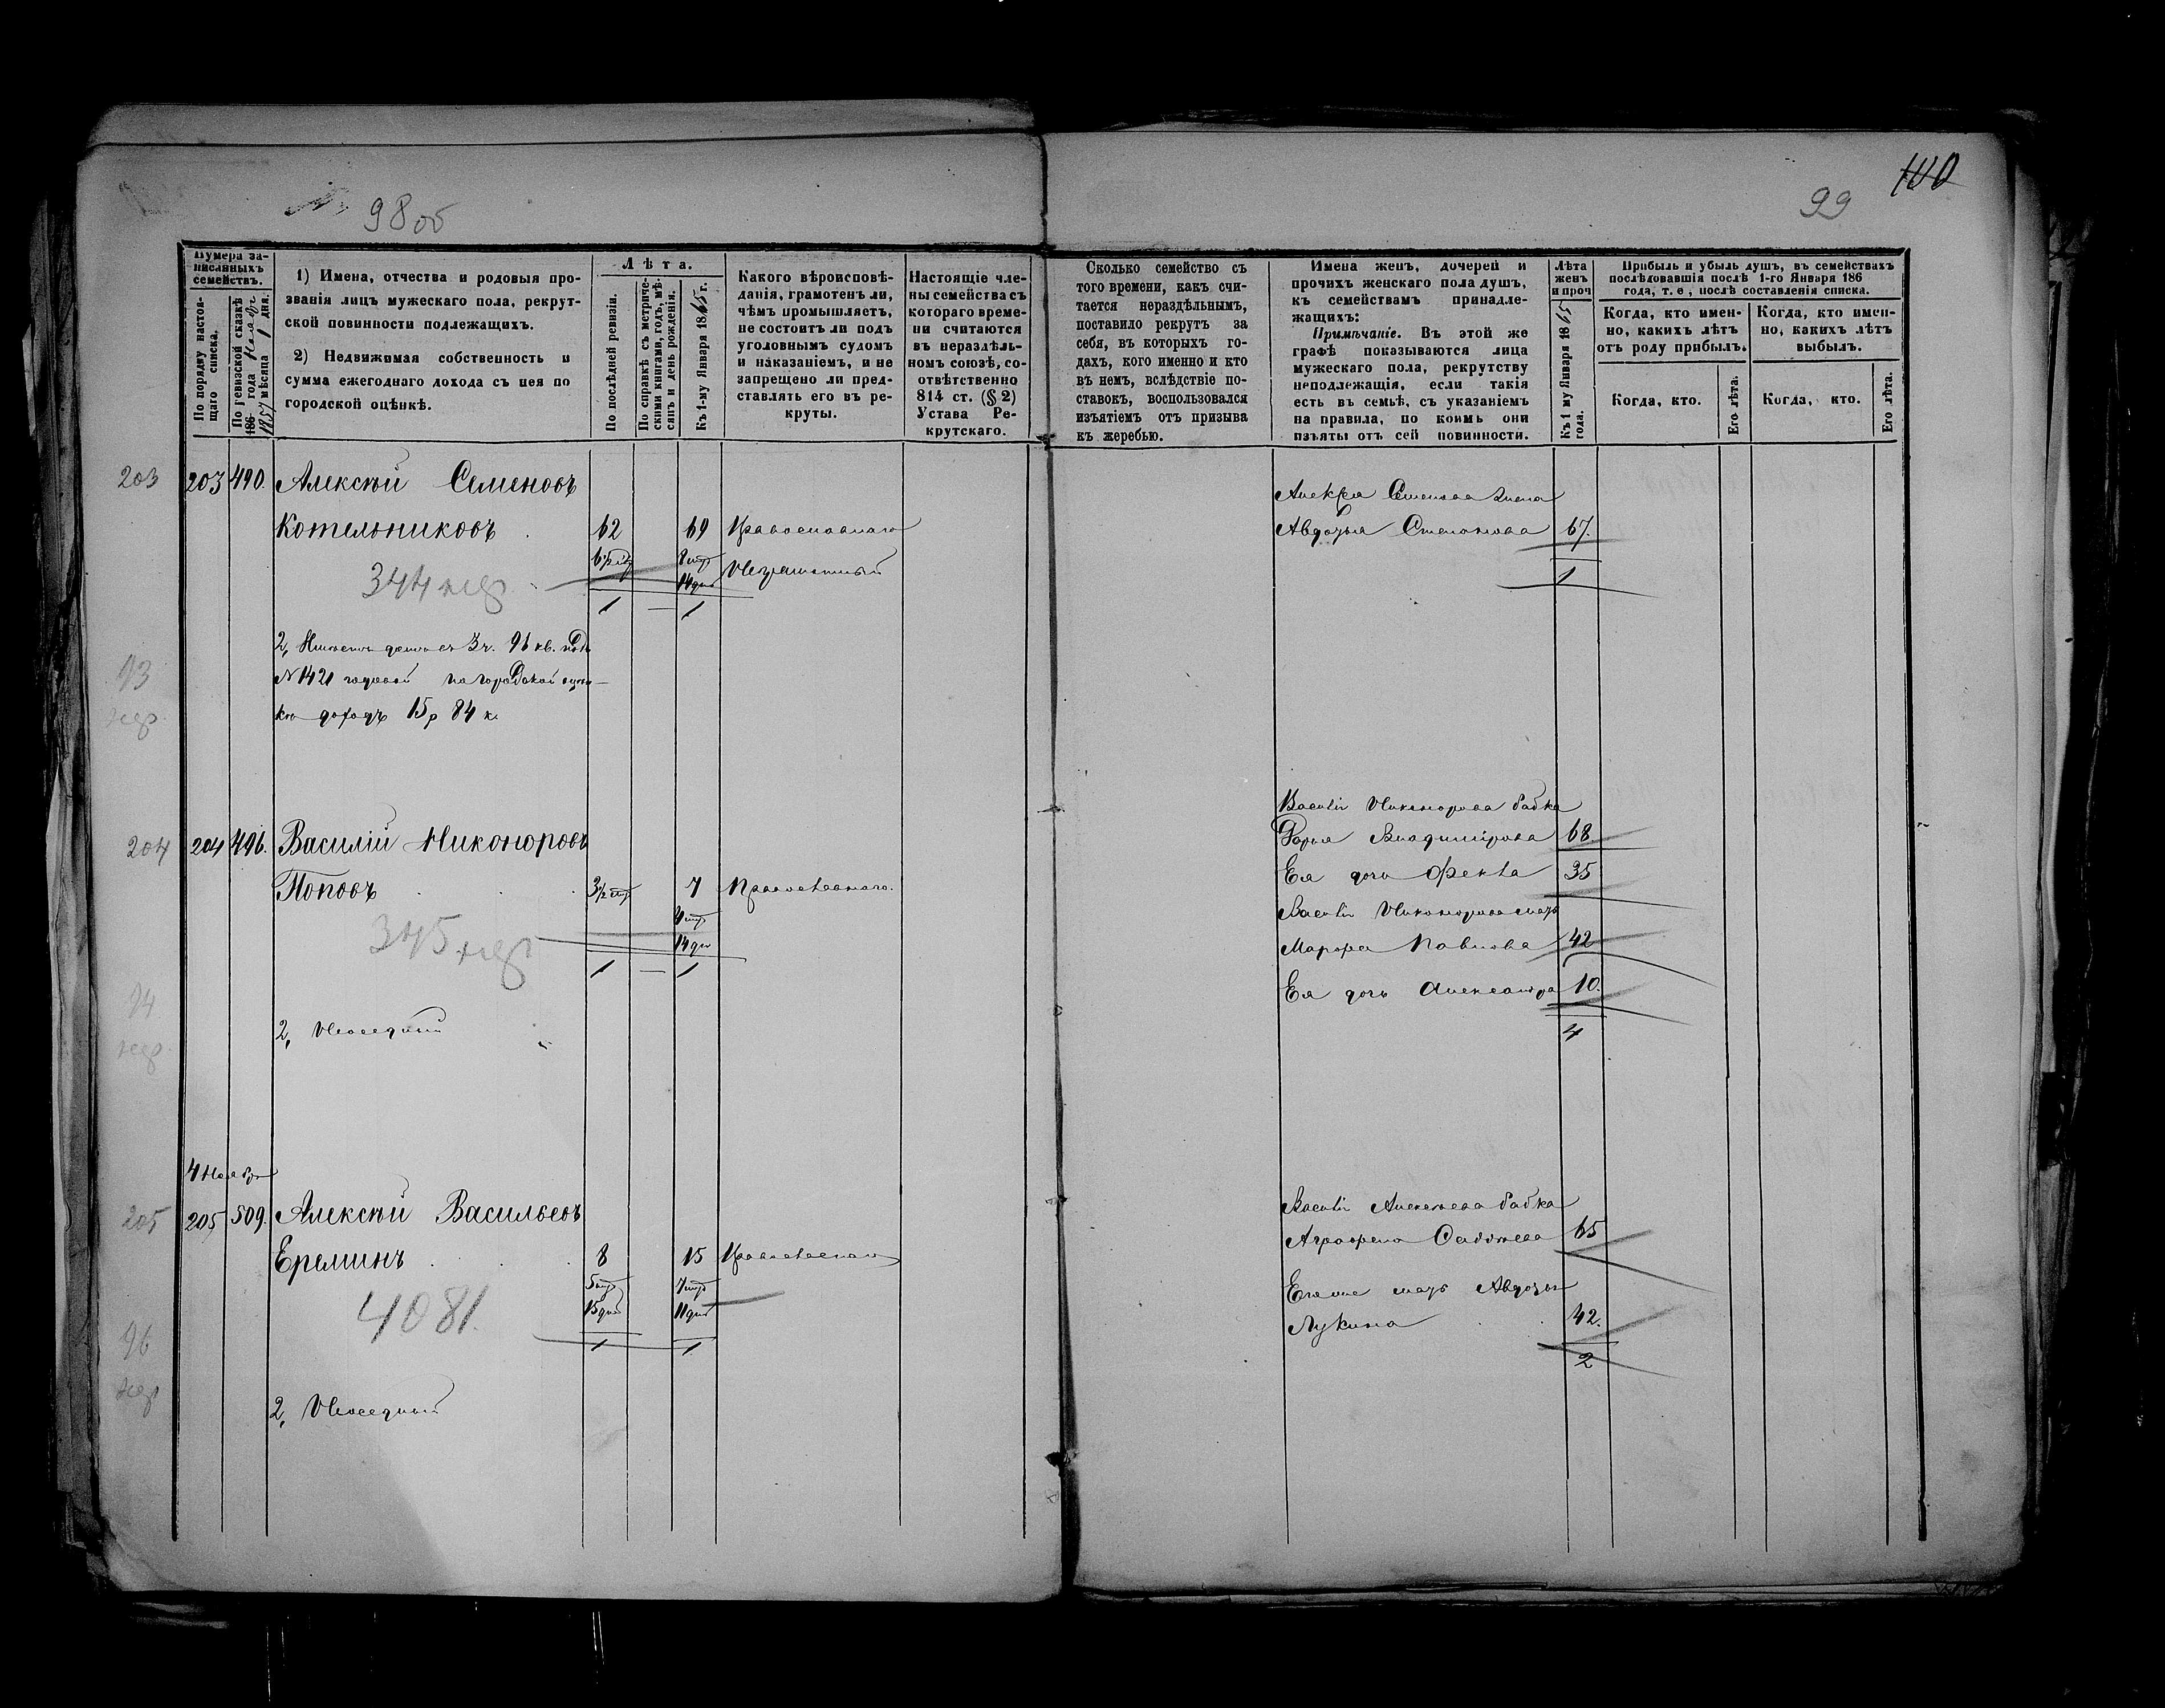 98 об
99
100
Нумера за-
писанныхъ
семействъ.
По порядку настоя-
щаго списка.
По ревизской сказкѣ
186 года
1857 мѣсяца 1 дня.
1) Имена, отчества и родовыя про-
званія лицъ мужескаго пола, рекрут-
ской повинности подлежащихъ.
2) Недвижимая собственность и
сумма ежегоднаго дохода съ нея по
городской оцѣнкѣ.
Лѣта.
По послѣдней ревизіи.
По справкѣ съ метриче-
скими книгами, годъ, мѣ-
сяцъ и день рожденія.
Къ 1-му Января 1865 г.
Какого вѣроисповѣ-
данія, грамотенъ ли,
чѣмъ промышляетъ,
не состоитъ ли подъ
уголовнымъ судомъ
и наказаніемъ, и не
запрещено ли пред-
ставлять его въ ре-
круты.
Настоящіе чле-
ны семейства съ
котораго време-
ни считаются
въ нераздѣль-
номъ союзѣ, со-
отвѣтственно
814 ст. (§ 2)
Устава Ре-
крутскаго.
Сколько семейство съ
того времени, какъ счи-
тается нераздѣльнымъ,
поставило рекрутъ за
себя, въ которыхъ го-
дахъ, кого именно и кто
въ немъ, вслѣдствіе по-
ставокъ, воспользовался
изъятіемъ отъ призыва
къ жеребью.
Имена женъ, дочерей и
прочихъ женскаго пола душъ,
къ семействамъ принадле-
жащихъ:
Примѣчаніе. Въ этой же
графѣ показываются лица
мужескаго пола, рекрутству
неподлежащія, если такія
есть въ семьѣ, съ указаніемъ
на правила, по коимъ они
изъяты отъ сей повинности.
Лѣта
женъ
и проч
Къ 1 му Января 1865
года.
Прибыль и убыль душъ, въ семействахъ
послѣдовавшія послѣ 1-го Января 186
года, т. е., послѣ составленія списка.
Когда, кто имен-
но, какихъ лѣтъ
отъ роду прибылъ.
Когда, кто имен-
но, какихъ лѣтъ
выбылъ.
Когда, кто.
Его лѣта.
Когда, кто.
Его лѣта.
203 203 490. Алексѣй Семеновъ
Котельниковъ 62 69 Православнаго
8 мѣс Неграмотный
14 дне
344
1 — 1
2, Имѣетъ домъ въ 3 ч. 96 кв. подъ
№ 1421 годовой по городской оцѣн-
кѣ доходъ 15 р 84 к.
93
Алексѣя Семенова жена
Авдотья Степанова 67.
1
204 204 496. Василій Никоноровъ
Поповъ 3½ 7 Православнаго.
4 мѣс
14 дне
345
1 — 1
94
2, Неоседлый
Василія Никонорова бабка
Дарья Владимірова 68
Ея дочь Фекла 35
Василія Никонорова мать
Марфа Павлова 42
Ея дочь Александра 10.
4
4 Ноября
205 205 509. Алексѣй Васильевъ
Ереминъ 8 15 Православнаго
5 мѣс 7 мѣс
15 дней 11 дней
4081.
1 1
96
2, Неоседлый
Аграфена 65
Его же мать Авдотья
Лукина 42.
2